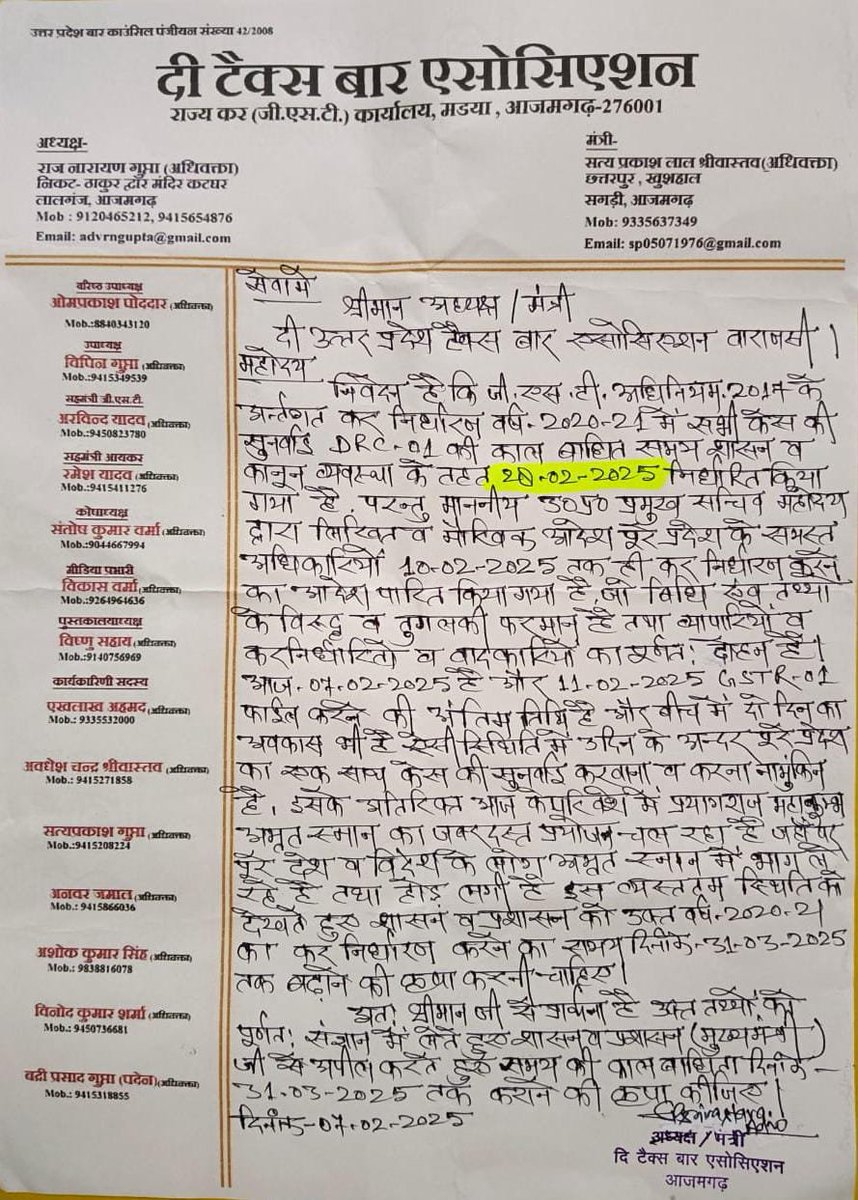 उत्तर प्रदेश बार काउंसिल पंजीयन संख्या 42/2008
दी टैक्स बार एसोसिएशन
राज्य कर (जी.एस.टी.) कार्यालय, मडया , आजमगढ़-276001
अध्यक्ष-
राज नारायण गुप्ता (अधिवक्ता)
निकट- ठाकुर द्वारे मंदिर कटघर
लालगंज, आजमगढ़
Mob : 9120465212, 9415654876
Email: advrngupta@gmail.com
मंत्री-
सत्य प्रकाश लाल श्रीवास्तव(अधिवक्ता)
छत्तरपुर , खुशहाल
सगड़ी, आजमगढ़
Mob: 9335637349
Email: sp05071976@gmail.com
वरिष्ठ उपाध्यक्ष
ओमप्रकाश पोददार (अधिवक्ता)
Mob.:8840343120
उपाध्यक्ष
विपिन गुप्ता (अधिवक्ता)
Mob.:9415349539
सहमंत्री जी.एस.टी.
अरविन्द यादव (अधिवक्ता)
Mob.:9450823780
सहमंत्री आयकर
रमेश यादव (अधिवक्ता)
Mob.:9415411276
कोषाध्यक्ष
संतोष कुमार वर्मा (अधिवक्ता)
Mob.:9044667994
मीडिया प्रभारी
विकास वर्मा (अधिवक्ता)
Mob.:9264964636
पुस्तकालयाध्यक्ष
विष्णु सहाय (अधिवक्ता)
Mob.:9140756969
कार्यकारिणी सदस्य
एखलाख अहमद (अधिवक्ता)
Mob.: 9335532000
अवधेश चन्द्र श्रीवास्तव (अधिवक्ता)
Mob.: 9415271858
सत्यप्रकाश गुप्ता (अधिवक्ता)
Mob.: 9415208224
अनवर जमाल (अधिवक्ता)
Mob.: 9415866036
अशोक कुमार सिंह (अधिवक्ता)
Mob.: 9838816078
विनोद कुमार शर्मा (अधिवक्ता)
Mob.: 9450736681
बद्री प्रसाद गुप्ता (पदेन)(अधिवक्ता)
Mob.: 9415318855
सेवा में
श्रीमान अध्यक्ष / मंत्री
दी उत्तर प्रदेश टैक्स बार एसोसिएशन वाराणसी।
महोदय
निवेदन है कि जी.एस.टी. अधिनियम.2017 के
अर्न्तगत कर निर्धारण वर्ष-2020-21 में सभी केस की
सुनवाई DRC-01 की काल बाधित समय शासन व
कानून व्यवस्था के तहत 28-02-2025 निर्धारित किया
गया है. परन्तु माननीय उ०प्र० प्रमुख सचिव महोदय
द्वारा लिखित व मौखिक आदेश पूरे प्रदेश के समस्त
अधिकारियों 10-02-2025 तक ही कर निर्धारण करने
का आदेश पारित किया गया है, जो विधि एवं तथ्यों
के विरुद्ध व तुगलकी फरमान है तथा व्यापारियों व
करनिर्धारितो व वादकारियों का पूर्णत: दोहन है।
आज.07.02-2025 है और 11-02-2025 GSTR-01
फाईल करने की अंतिम तिथि है और बीच में दो दिन का
अवकाश भी है ऐसी स्थिति में 3दिन के अन्दर पूरे प्रदेश
का एक साथ केस की सुनवाई करवाना व करना नामुंकिन
है. इसके अतिरिक्त आज के परिवेश में प्रयागराज महाकुम्भ
अमृत स्नान का जबरदस्त प्रयोजन चल रहा है जहाँ पर
पूरे देश व विदेश के लोग अमृत स्नान में भाग ले
रहे है तथा होड़ लगी है इस व्यस्ततम स्थिति को
देखते हुए शासन व प्रशासन को उक्त वर्ष-2020-21
का कर निर्धारण करने का समय दिनांक-31-03-2025
तक बढ़ाने की कृपा करनी चाहिए।
अत: श्रीमान जी से प्रार्थना है उक्त तथ्यों को
पूर्णत: संज्ञान में लेते हुए शासन व प्रशासन (मुख्यमंत्री)
जी से अपील करते हुए समय की काल बाधिता दिनांक-
31-03-2025 तक कराने की कृपा कीजिए।
दिनांक-07-02-2025
अध्यक्ष / मंत्री
दि टैक्स बार एसोसिएशन
आजमगढ़